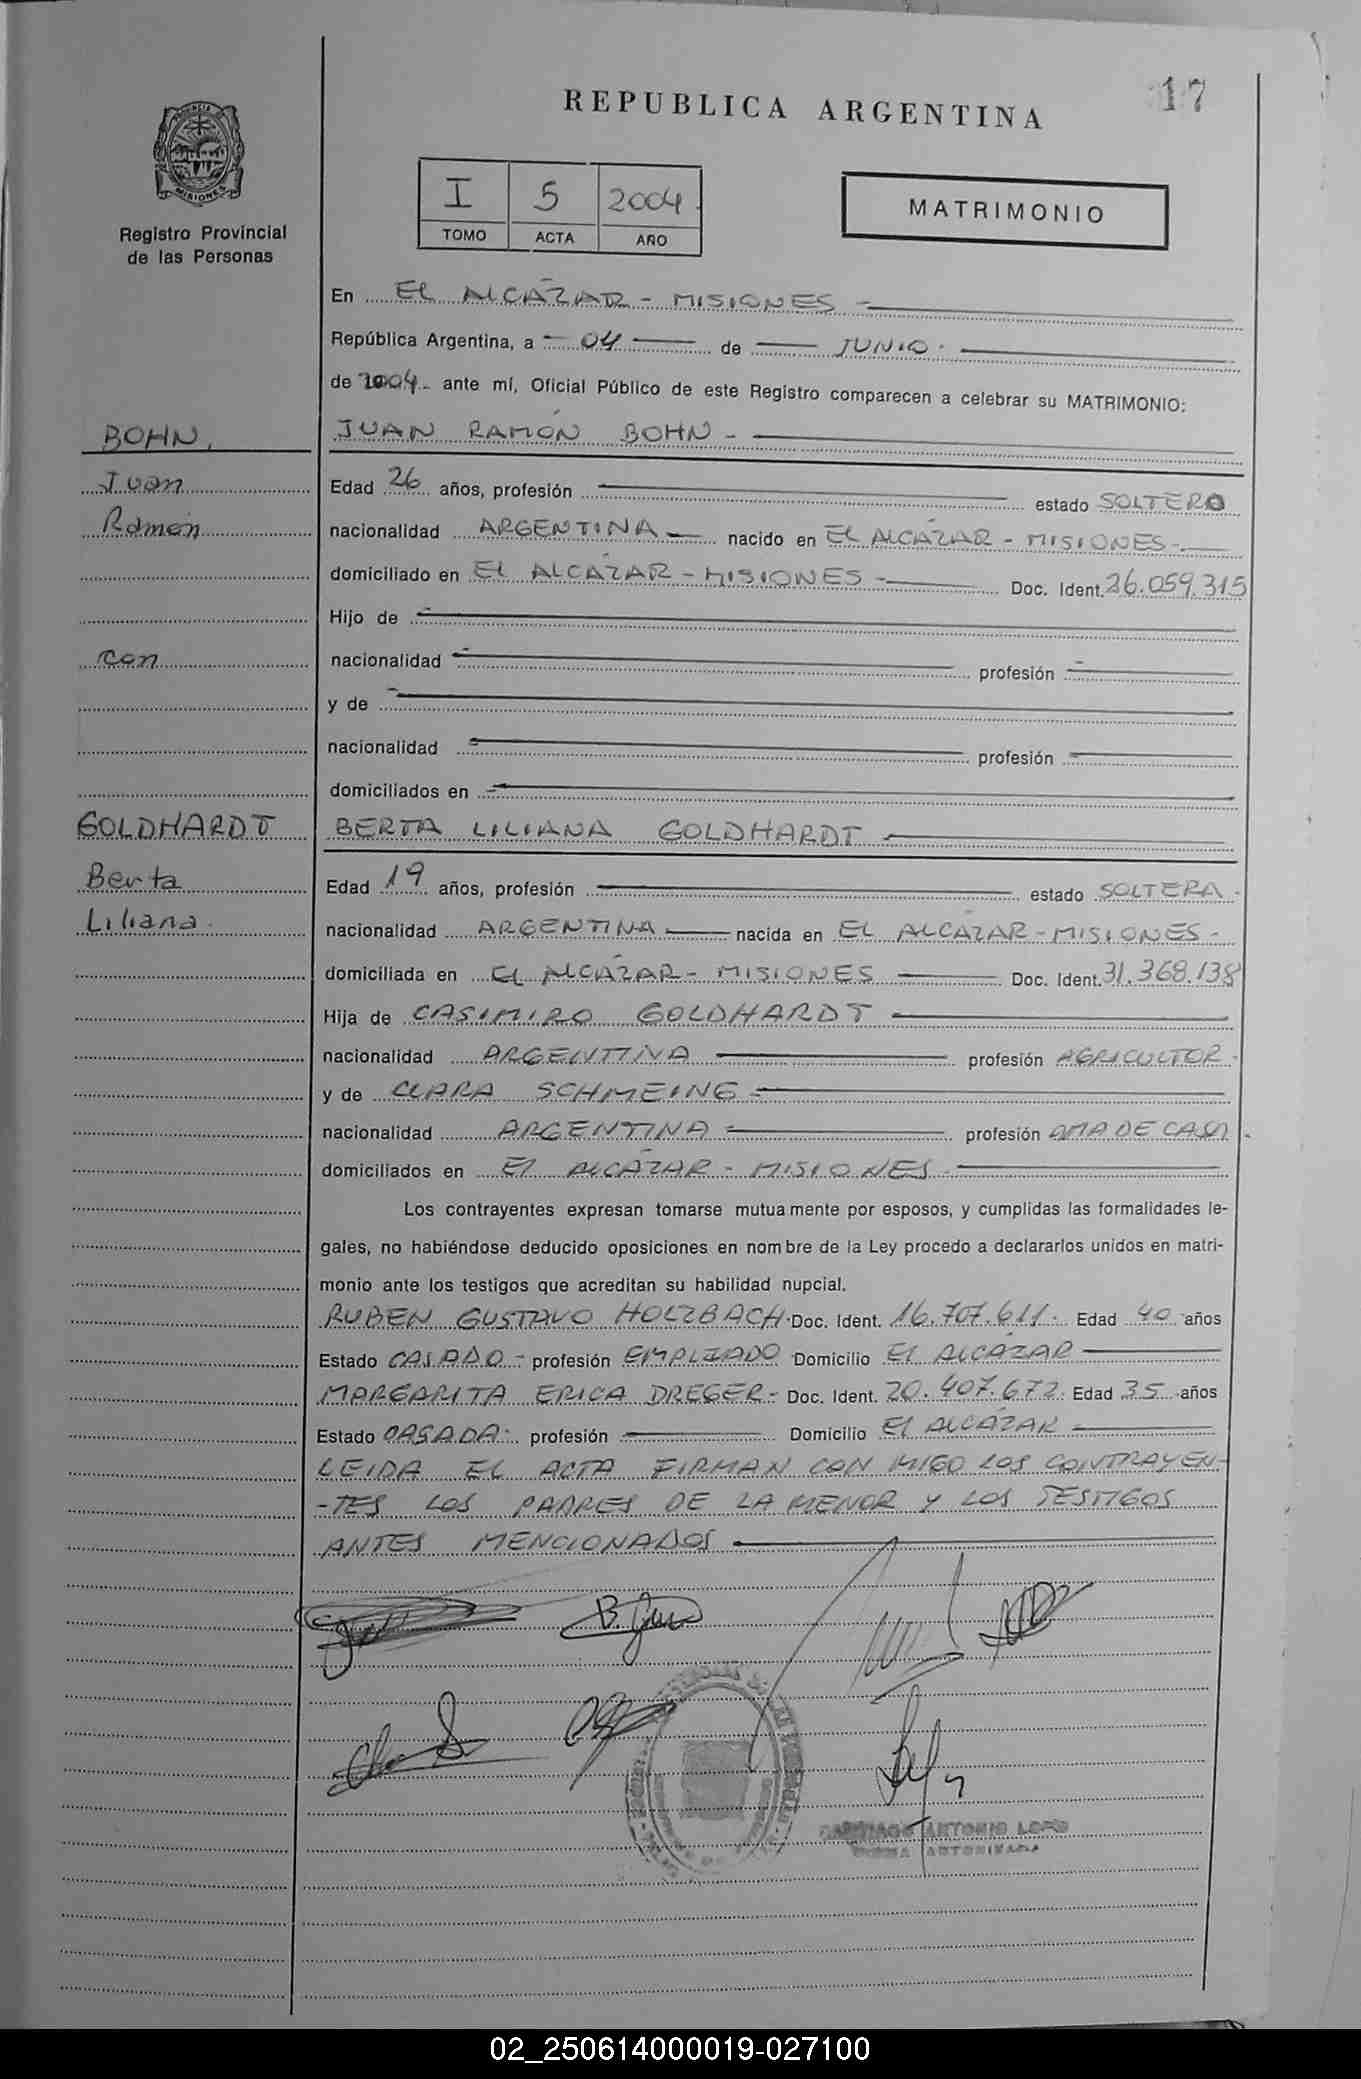 17
REPUBLICA ARGENTINA
PROVINCIA
MISIONES
Registro Provincial
de las Personas
I 5 2004
TOMO ACTA AÑO
MATRIMONIO
En EL ALCÁZAR - MISIONES -
República Argentina, a - 04 de JUNIO.
de 2004 - ante mí, Oficial Público de este Registro comparecen a celebrar su MATRIMONIO:
BOHN,
JUAN RAMÓN BOHN -
Juan
Edad 26 años, profesión estado SOLTERO
Ramón
nacionalidad ARGENTINA nacido en EL ALCÁZAR - MISIONES -
domiciliado en EL ALCÁZAR - MISIONES - Doc. Ident. 26.059.315
Hijo de
con
nacionalidad profesión
y de
nacionalidad profesión
domiciliados en
GOLDHARDT
BERTA LILIANA GOLDHARDT
Berta
Edad 19 años, profesión estado SOLTERA -
Liliana.
nacionalidad ARGENTINA nacida en EL ALCÁZAR - MISIONES -
domiciliada en EL ALCÁZAR - MISIONES Doc. Ident. 31.368.138
Hija de CASIMIRO GOLDHARDT
nacionalidad ARGENTINA profesión AGRICULTOR -
y de CLARA SCHMEING -
nacionalidad ARGENTINA - profesión AMA DE CASA -
domiciliados en El ALCÁZAR - MISIONES -
Los contrayentes expresan tomarse mutuamente por esposos, y cumplidas las formalidades le-
gales, no habiéndose deducido oposiciones en nombre de la Ley procedo a declararlos unidos en matri-
monio ante los testigos que acreditan su habilidad nupcial.
RUBEN GUSTAVO HOLZBACH - Doc. Ident. 16.707.611 - Edad 40 años
Estado CASADO - profesión EMPLEADO Domicilio El ALCÁZAR
MARGARITA ERICA DREGER - Doc. Ident. 20.407.672 Edad 35 años
Estado CASADA - profesión Domicilio El ALCÁZAR
LEIDA EL ACTA FIRMAN CON MIGO LOS CONTRAYEN-
-TES LOS PADRES DE LA MENOR Y LOS TESTIGOS
ANTES MENCIONADOS
ANTONIO
AUTORIZADA
02_250614000019-027100